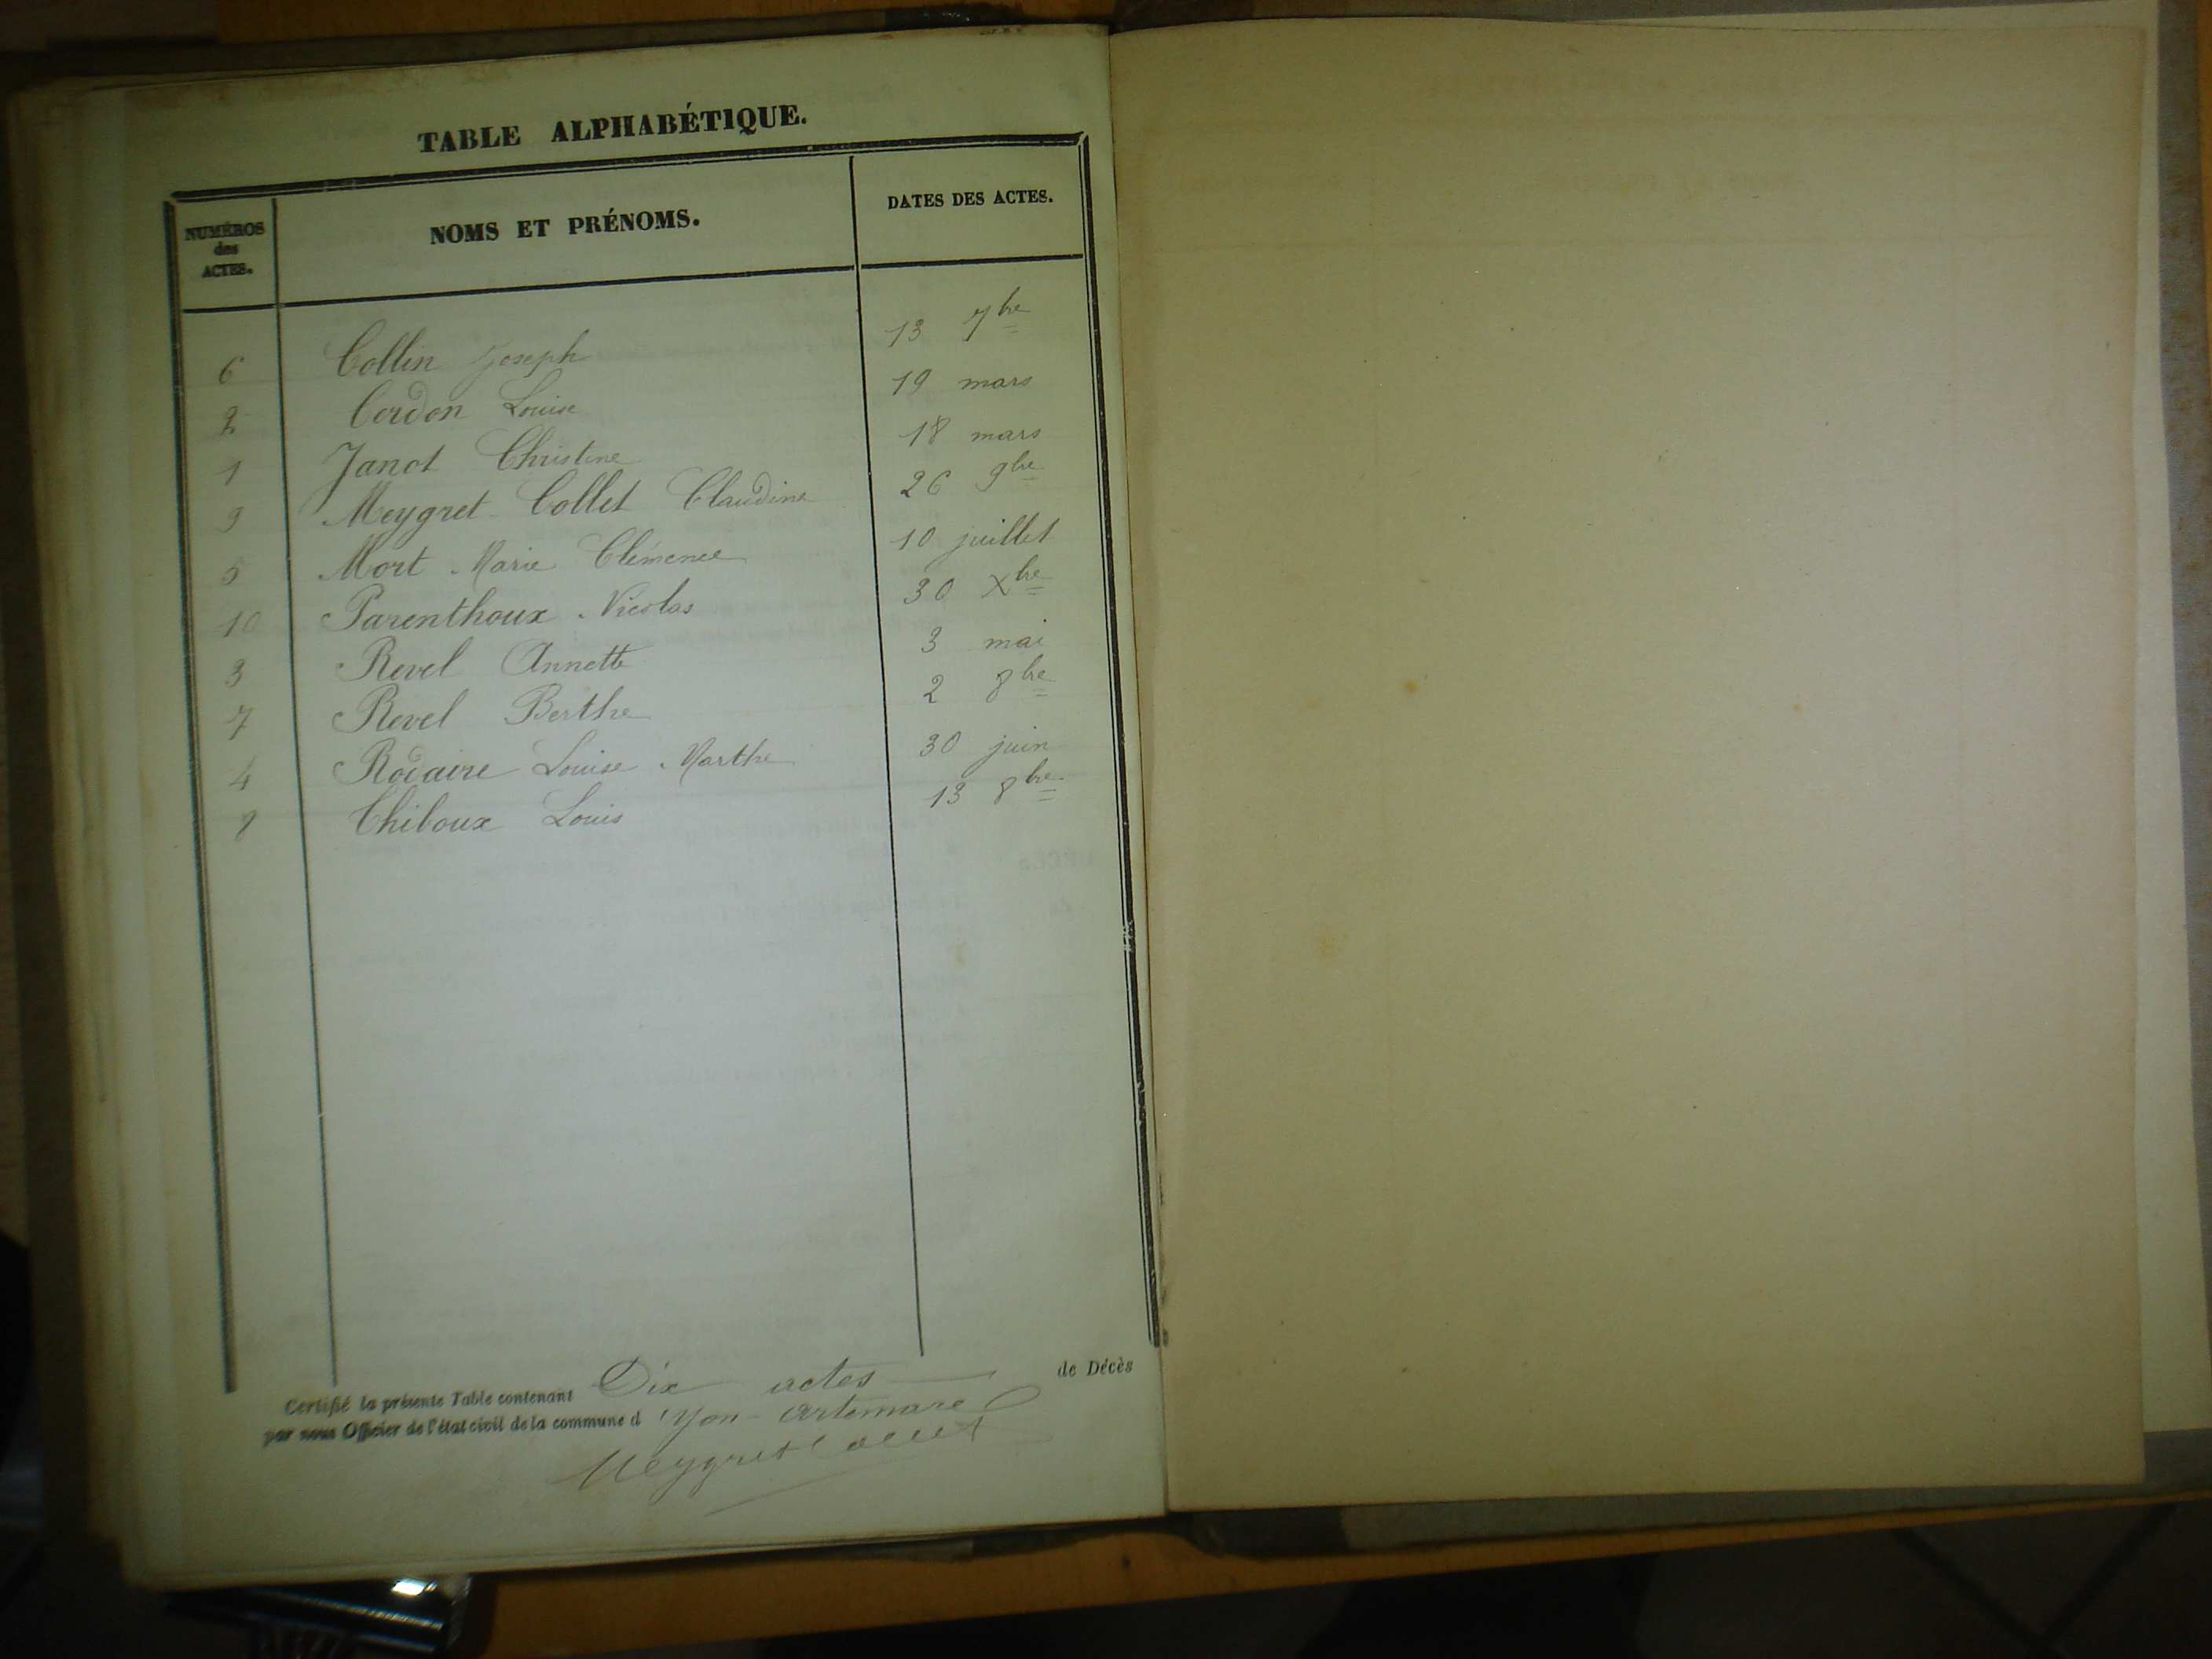 TABLE ALPHABÉTIQUE.
NUMÉROS des ACTES. NOMS ET PRÉNOMS. DATES DES ACTES.
6 Collin Joseph 13 7bre
2 Cordon Louise 19 mars
1 Janot Christine 18 mars
9 Meygret-Collet Claudine 26 9bre
5 Mort Marie Clémence 10 juillet
10 Parenthoux Nicolas 30 Xbre
3 Revel Annette 3 mai
7 Revel Berthe 2 8bre
4 Rodaire Louise Marthe 30 juin
Thiboux Louis 13 8bre
Certifié la présente Table contenant Dix actes de Décès
par nous Officier de l'état civil de la commune d'Yon-Artemare
Meygret Collet